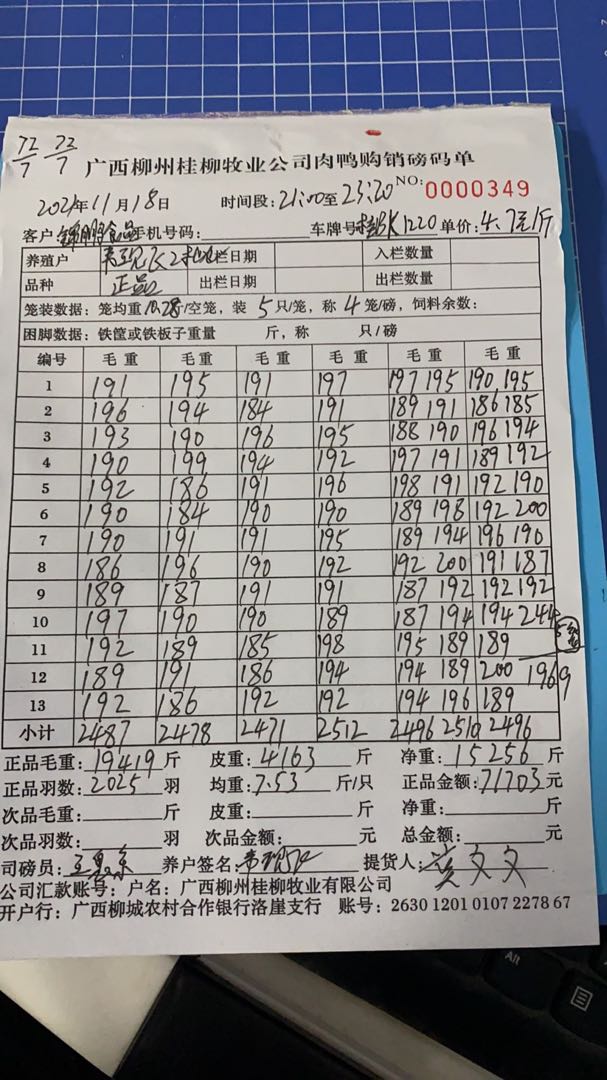 72 72
7 7
广西柳州桂柳牧业公司肉鸭购销磅码单
2021年11月18日 时间段:21:00至23:20 NO: 0000349
客户: 食品 手机号码: 车牌号: 1220 单价: 4.7元/斤
养殖户 出栏日期 入栏数量
品种 正品 出栏日期 出栏数量
笼装数据: 笼均重 /空笼, 装 5 只/笼, 称 4 笼/磅, 饲料余数:
困脚数据: 铁筐或铁板子重量 斤, 称 只/磅
编号 毛重 毛重 毛重 毛重 毛重 毛重
1 191 195 191 197 197 195 190 195
2 196 194 184 191 189 191 186 185
3 193 190 196 195 188 190 196 194
4 190 199 194 192 197 191 189 192
5 192 186 191 196 198 191 192 190
6 190 184 190 190 189 198 192 200
7 190 191 191 195 189 194 196 190
8 186 196 190 192 192 200 191 187
9 189 187 191 191 187 192 192 192
10 197 190 190 189 187 194 194 244
11 192 189 185 198 195 189 189
12 189 191 186 194 194 189 200 1969
13 192 186 192 192 194 196 189
小计 2487 2478 2471 2512 2496 2510 2496
正品毛重: 19419 斤 皮重: 4163 斤 净重: 15256 斤
正品羽数: 2025 羽 均重: 7.53 斤/只 正品金额: 71703 元
次品毛重: 斤 皮重: 斤 净重: 斤
次品羽数: 羽 次品金额: 元 总金额: 元
司磅员: 养户签名: 提货人: 文文
公司汇款账号: 户名: 广西柳州桂柳牧业有限公司
开户行: 广西柳城农村合作银行洛崖支行 账号: 2630 1201 0107 2278 67
Alt